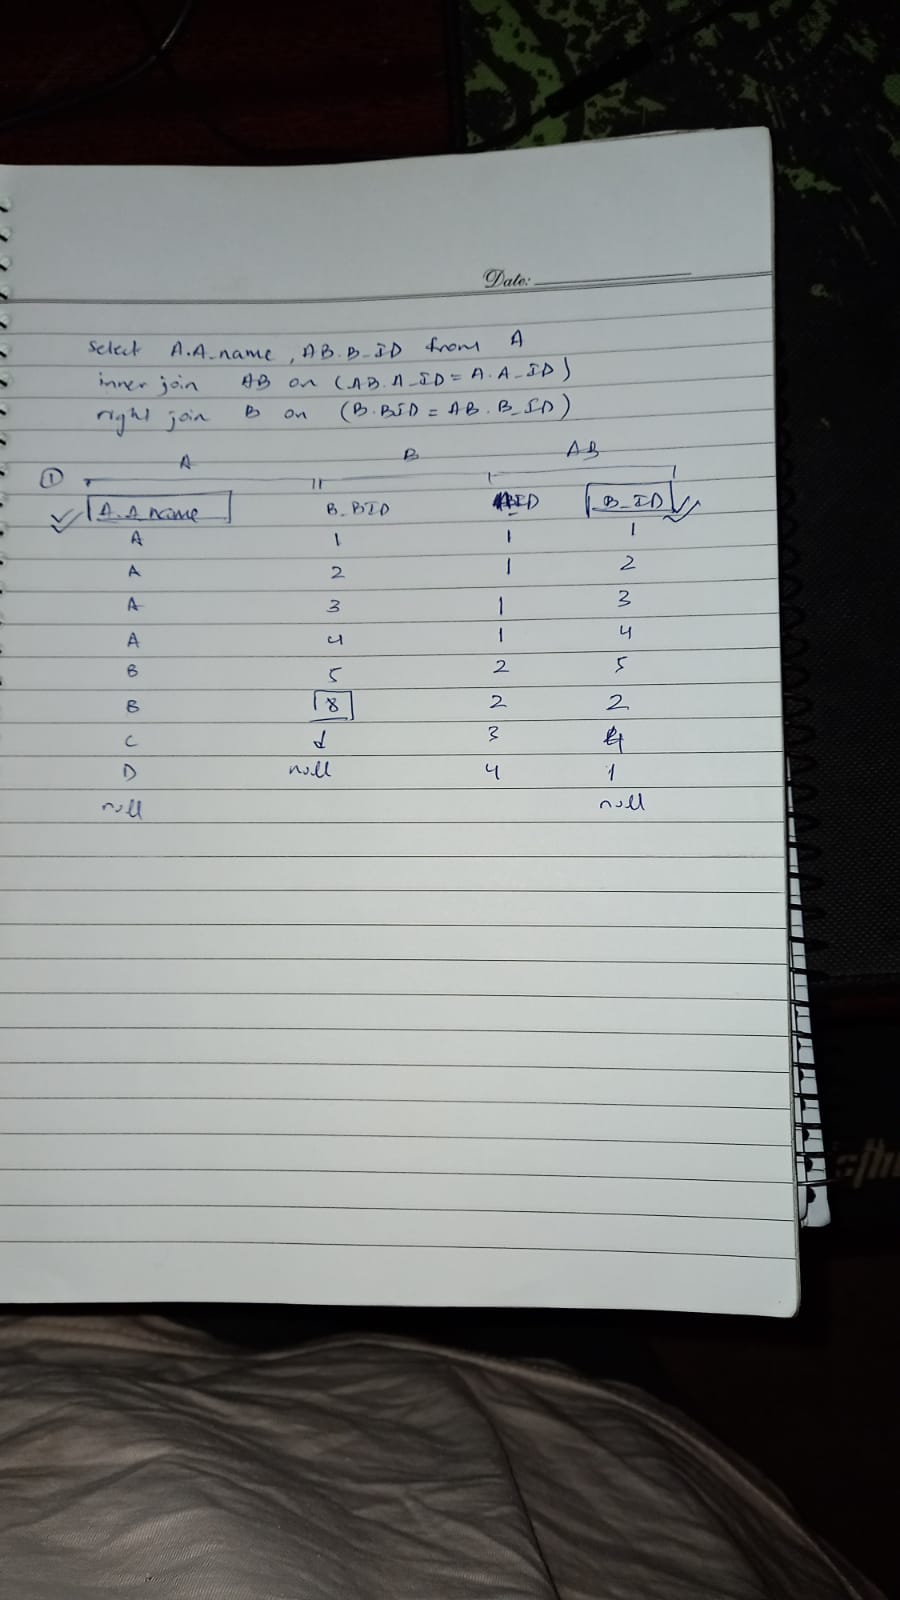 Date:
Select A.A_name , AB.B_ID from A
inner join AB on (AB.A_ID = A.A_ID)
right join B on (B.BID = AB.B_ID)
A B AB
① A.A_name B.BID B_ID
A 1 1 1
A 2 1 2
A 3 1 3
A 4 1 4
B 5 2 5
B 8 2 2
C 3
D null 4 1
null null